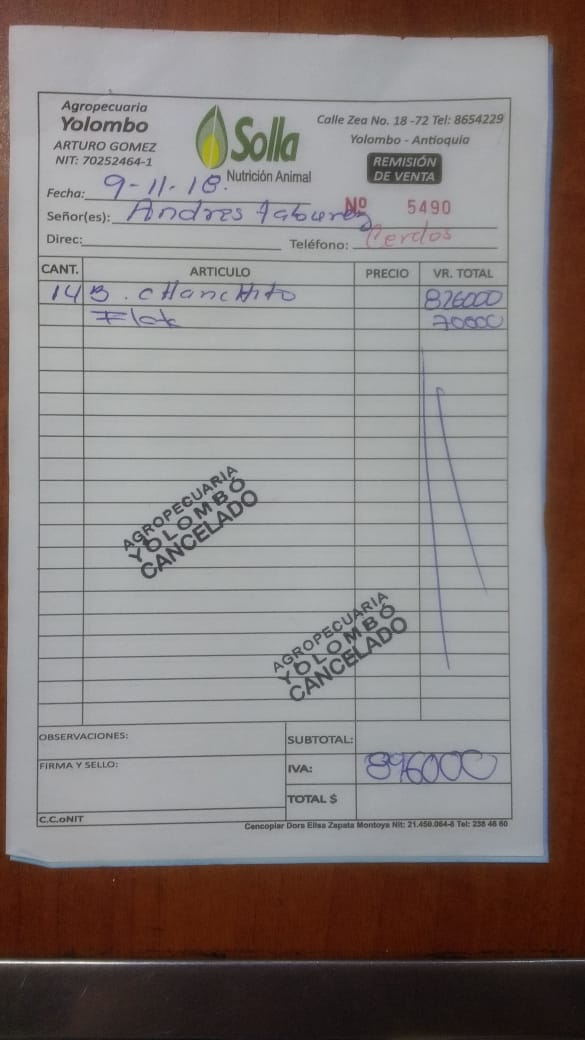 Agropecuaria
Yolombo
ARTURO GOMEZ
NIT: 70252464-1
Solla
Nutrición Animal
Calle Zea No. 18 -72 Tel: 8654229
Yolombo - Antioquia
REMISIÓN
DE VENTA
Fecha: 9-11-18.
Nº 5490
Señor(es): Andres
Direc: Teléfono: Cerdos
CANT. ARTICULO PRECIO VR. TOTAL
14 B. cHancHito 826000
70000
AGROPECUARIA
YOLOMBÓ
CANCELADO
AGROPECUARIA
YOLOMBÓ
CANCELADO
OBSERVACIONES:
SUBTOTAL:
FIRMA Y SELLO:
IVA: 896000
TOTAL $
C.C.oNIT
Cencopiar Dora Elisa Zapata Montoya Nit: 21.450.064-6 Tel: 238 46 60